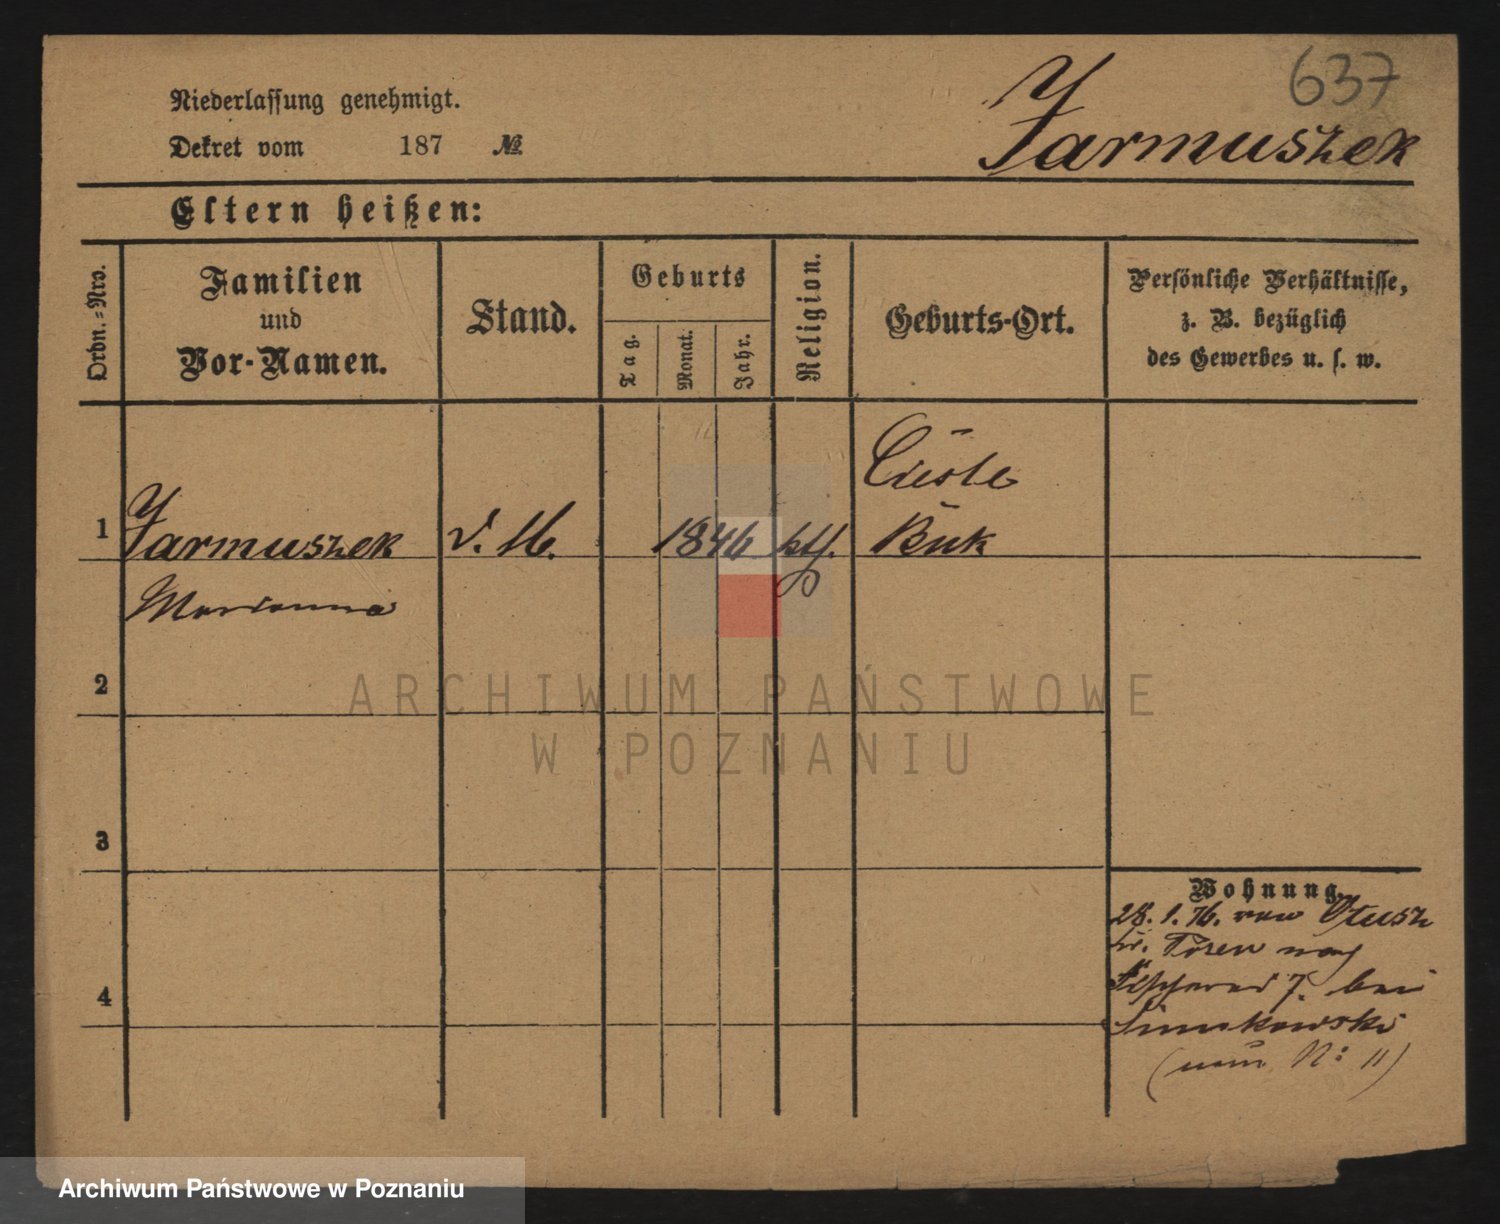 637
Niederlassung genehmigt.
Dekret vom 187 №
Jarmuszek
Eltern heißen:
Ordn.-Nro.
Familien
und
Vor-Namen.
Stand.
Geburts
Tag.
Monat.
Jahr.
Religion.
Geburts-Ort.
Persönliche Verhältnisse,
z. B. bezüglich
des Gewerbes u. s. w.
1
Jarmuszek
Marianna
1846
kth.
Buk
2
3
4
Wohnung.
28. 1. 76. von Otusz
Kr. Posen nach
Fischerei 7. bei
(neue N: 11)
ARCHIWUM PAŃSTWOWE
W POZNANIU
Archiwum Państwowe w Poznaniu